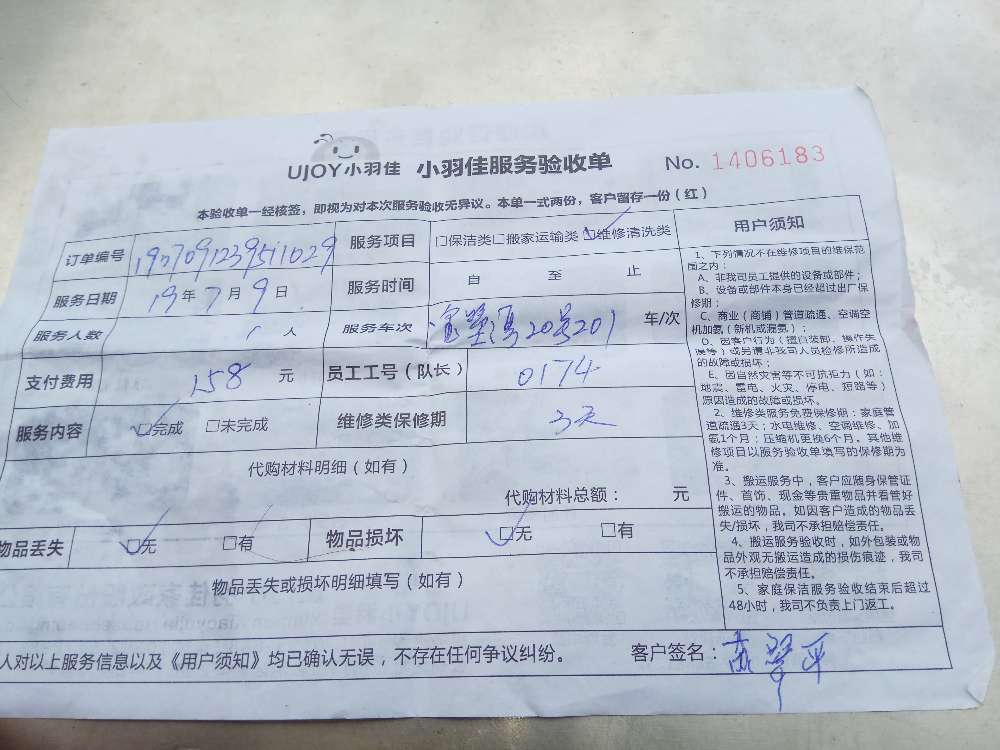 UJOY小羽佳 小羽佳服务验收单 No. 1406183
本验收单一经核签，即视为对本次服务验收无异议。本单一式两份，客户留存一份（红）
订单编号 190709123951029 服务项目 □保洁类□搬家运输类□维修清洗类
服务日期 19年7月9日 服务时间 自 至 止
服务人数 1人 服务车次 20号201 车/次
支付费用 158 元 员工工号（队长） 0174
服务内容 □完成 □未完成 维修类保修期 3天
代购材料明细（如有）
代购材料总额： 元
物品丢失 □无 □有 物品损坏 □无 □有
物品丢失或损坏明细填写（如有）
人对以上服务信息以及《用户须知》均已确认无误，不存在任何争议纠纷。 客户签名：
用户须知
1、下列情况不在维修项目的维保范
围之内：
A、非我司员工提供的设备或部件；
B、设备或部件本身已经超过出厂保
修期；
C、商业（商铺）管道疏通、空调空
机加氨（新机或漏氨）；
D、因客户行为（擅自装卸、操作失
误等）或另请非我司人员检修所造成
的故障或损坏；
E、因自然灾害等不可抗拒力（如：
地震、雷电、火灾、停电、短路等）
原因造成的故障或损坏。
2、维修类服务免费保修期：家庭管
道疏通3天；水电维修、空调维修、加
氨1个月；压缩机更换6个月。其他维
修项目以服务验收单填写的保修期为
准。
3、搬运服务中，客户应随身保管证
件、首饰、现金等贵重物品并看管好
搬运的物品。如因客户造成的物品丢
失/损坏，我司不承担赔偿责任。
4、搬运服务验收时，如外包装或物
品外观无搬运造成的损伤痕迹，我司
不承担赔偿责任。
5、家庭保洁服务验收结束后超过
48小时，我司不负责上门返工。